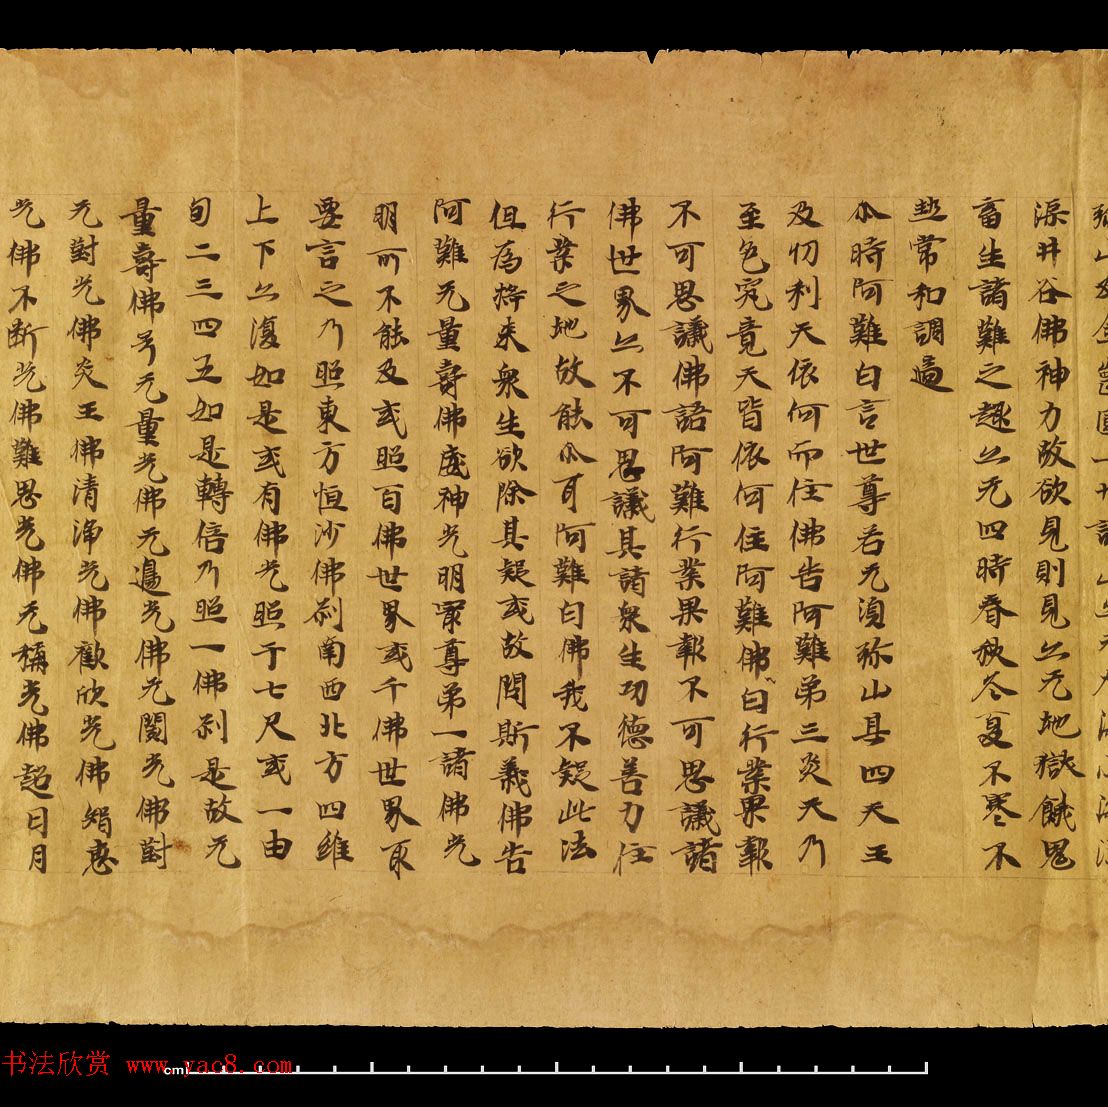 弥山及金圍一切諸山
渠井谷佛神力故欲見則見亦无地獄餓鬼
畜生諸難之趣亦无四時春秋冬夏不寒不
熱常和調適
尒時阿難白言世尊若无湏弥山其四天王
及忉利天依何而住佛告阿難弟三炎天乃
至色究竟天皆依何住阿難佛曰行業果報
不可思議佛語阿難行業果報不可思議諸
佛世界亦不可思議其諸衆生功德善力住
行業之地故能尒耳阿難白佛我不疑此法
但為將来衆生欲除其疑或故問斯義佛告
阿難无量壽佛威神光明最尊弟一諸佛光
明所不能及或照百佛世界或千佛世界取
要言之乃照東方恒沙佛刹南西北方四維
上下亦復如是或有佛光照于七尺或一由
旬二三四五如是轉倍乃照一佛刹是故无
量壽佛号无量光佛无邊光佛无閡光佛對
无對光佛炎王佛清淨光佛歡欣光佛智恵
光佛不断光佛難思光佛无稱光佛超日月
书法欣赏 www.yac8.com
cm